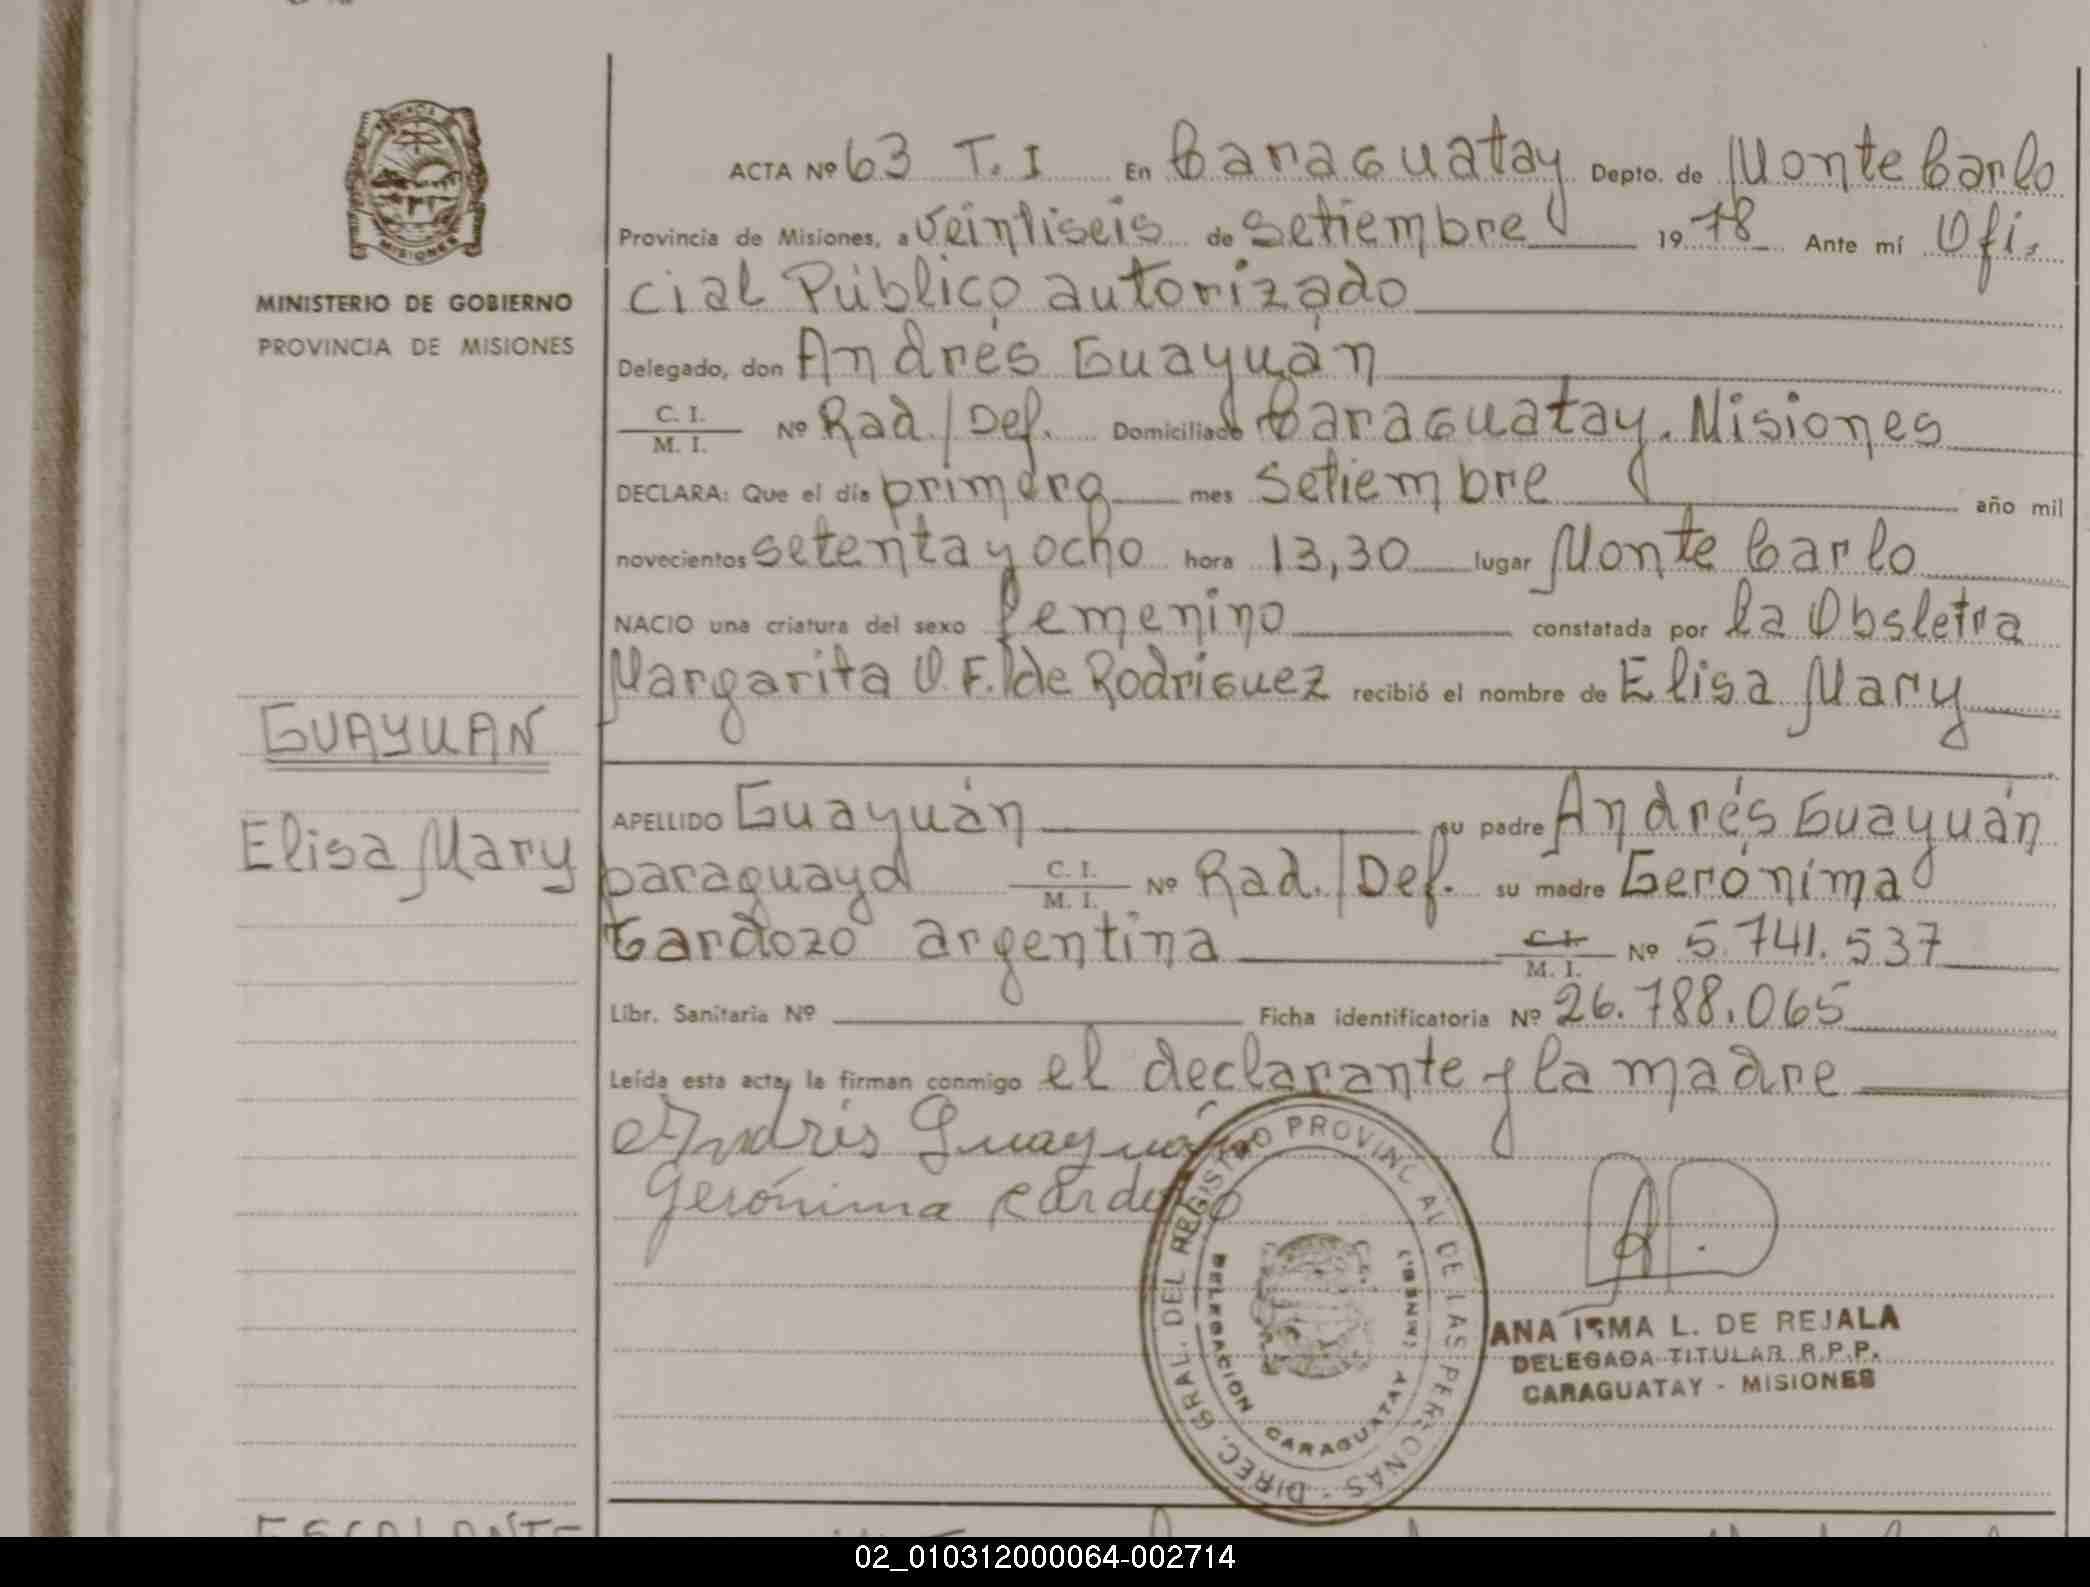 MINISTERIO DE GOBIERNO
PROVINCIA DE MISIONES
ACTA Nº 63 T. I En Caraguatay Depto. de Monte Carlo
Provincia de Misiones, a veintiseis de setiembre 19 78 Ante mí Ofi-
cial Público autorizado
Delegado, don Andrés Guayuán
C. I.
M. I. Nº Rad./Def. Domiciliado Caraguatay. Misiones
DECLARA: Que el día primero mes setiembre año mil
novecientos setenta y ocho hora 13,30 lugar Monte Carlo
NACIO una criatura del sexo femenino constatada por la Obstetra
Margarita O. F. de Rodriguez recibió el nombre de Elisa Mary
GUAYUAN
Elisa Mary
APELLIDO Guayuán su padre Andrés Guayuán
paraguayo C. I.
M. I. Nº Rad./Def. su madre Gerónima
Cardozo argentina C. I.
M. I. Nº 5.741.537
Libr. Sanitaria Nº Ficha identificatoria Nº 26.788.065
Leída esta acta, la firman conmigo el declarante y la madre
Andrés Guayuán
Gerónima Cardozo
DIREC. GRAL. DEL REGISTRO PROVINCIAL DE LAS PERSONAS
DELEGACION CARAGUATAY (MNES.)
ANA IRMA L. DE REJALA
DELEGADA TITULAR R.P.P.
CARAGUATAY - MISIONES
ESCALANTE
02_010312000064-002714